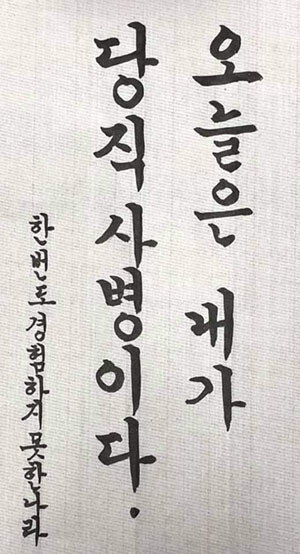 오늘은 내가
당직사병이다.
한번도경험하지못한나라